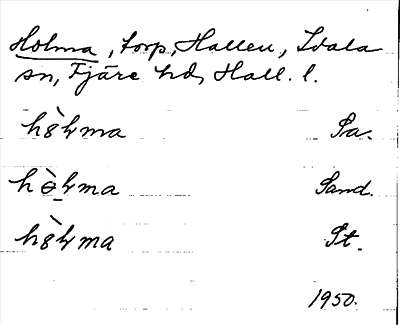 Holma, torp, Hallen, Idala
sn, Fjäre hd, Hall. l.
hò̤ɫma Sa.
hò̱ɫma Sand.
hò̤ɫma St.
1950.